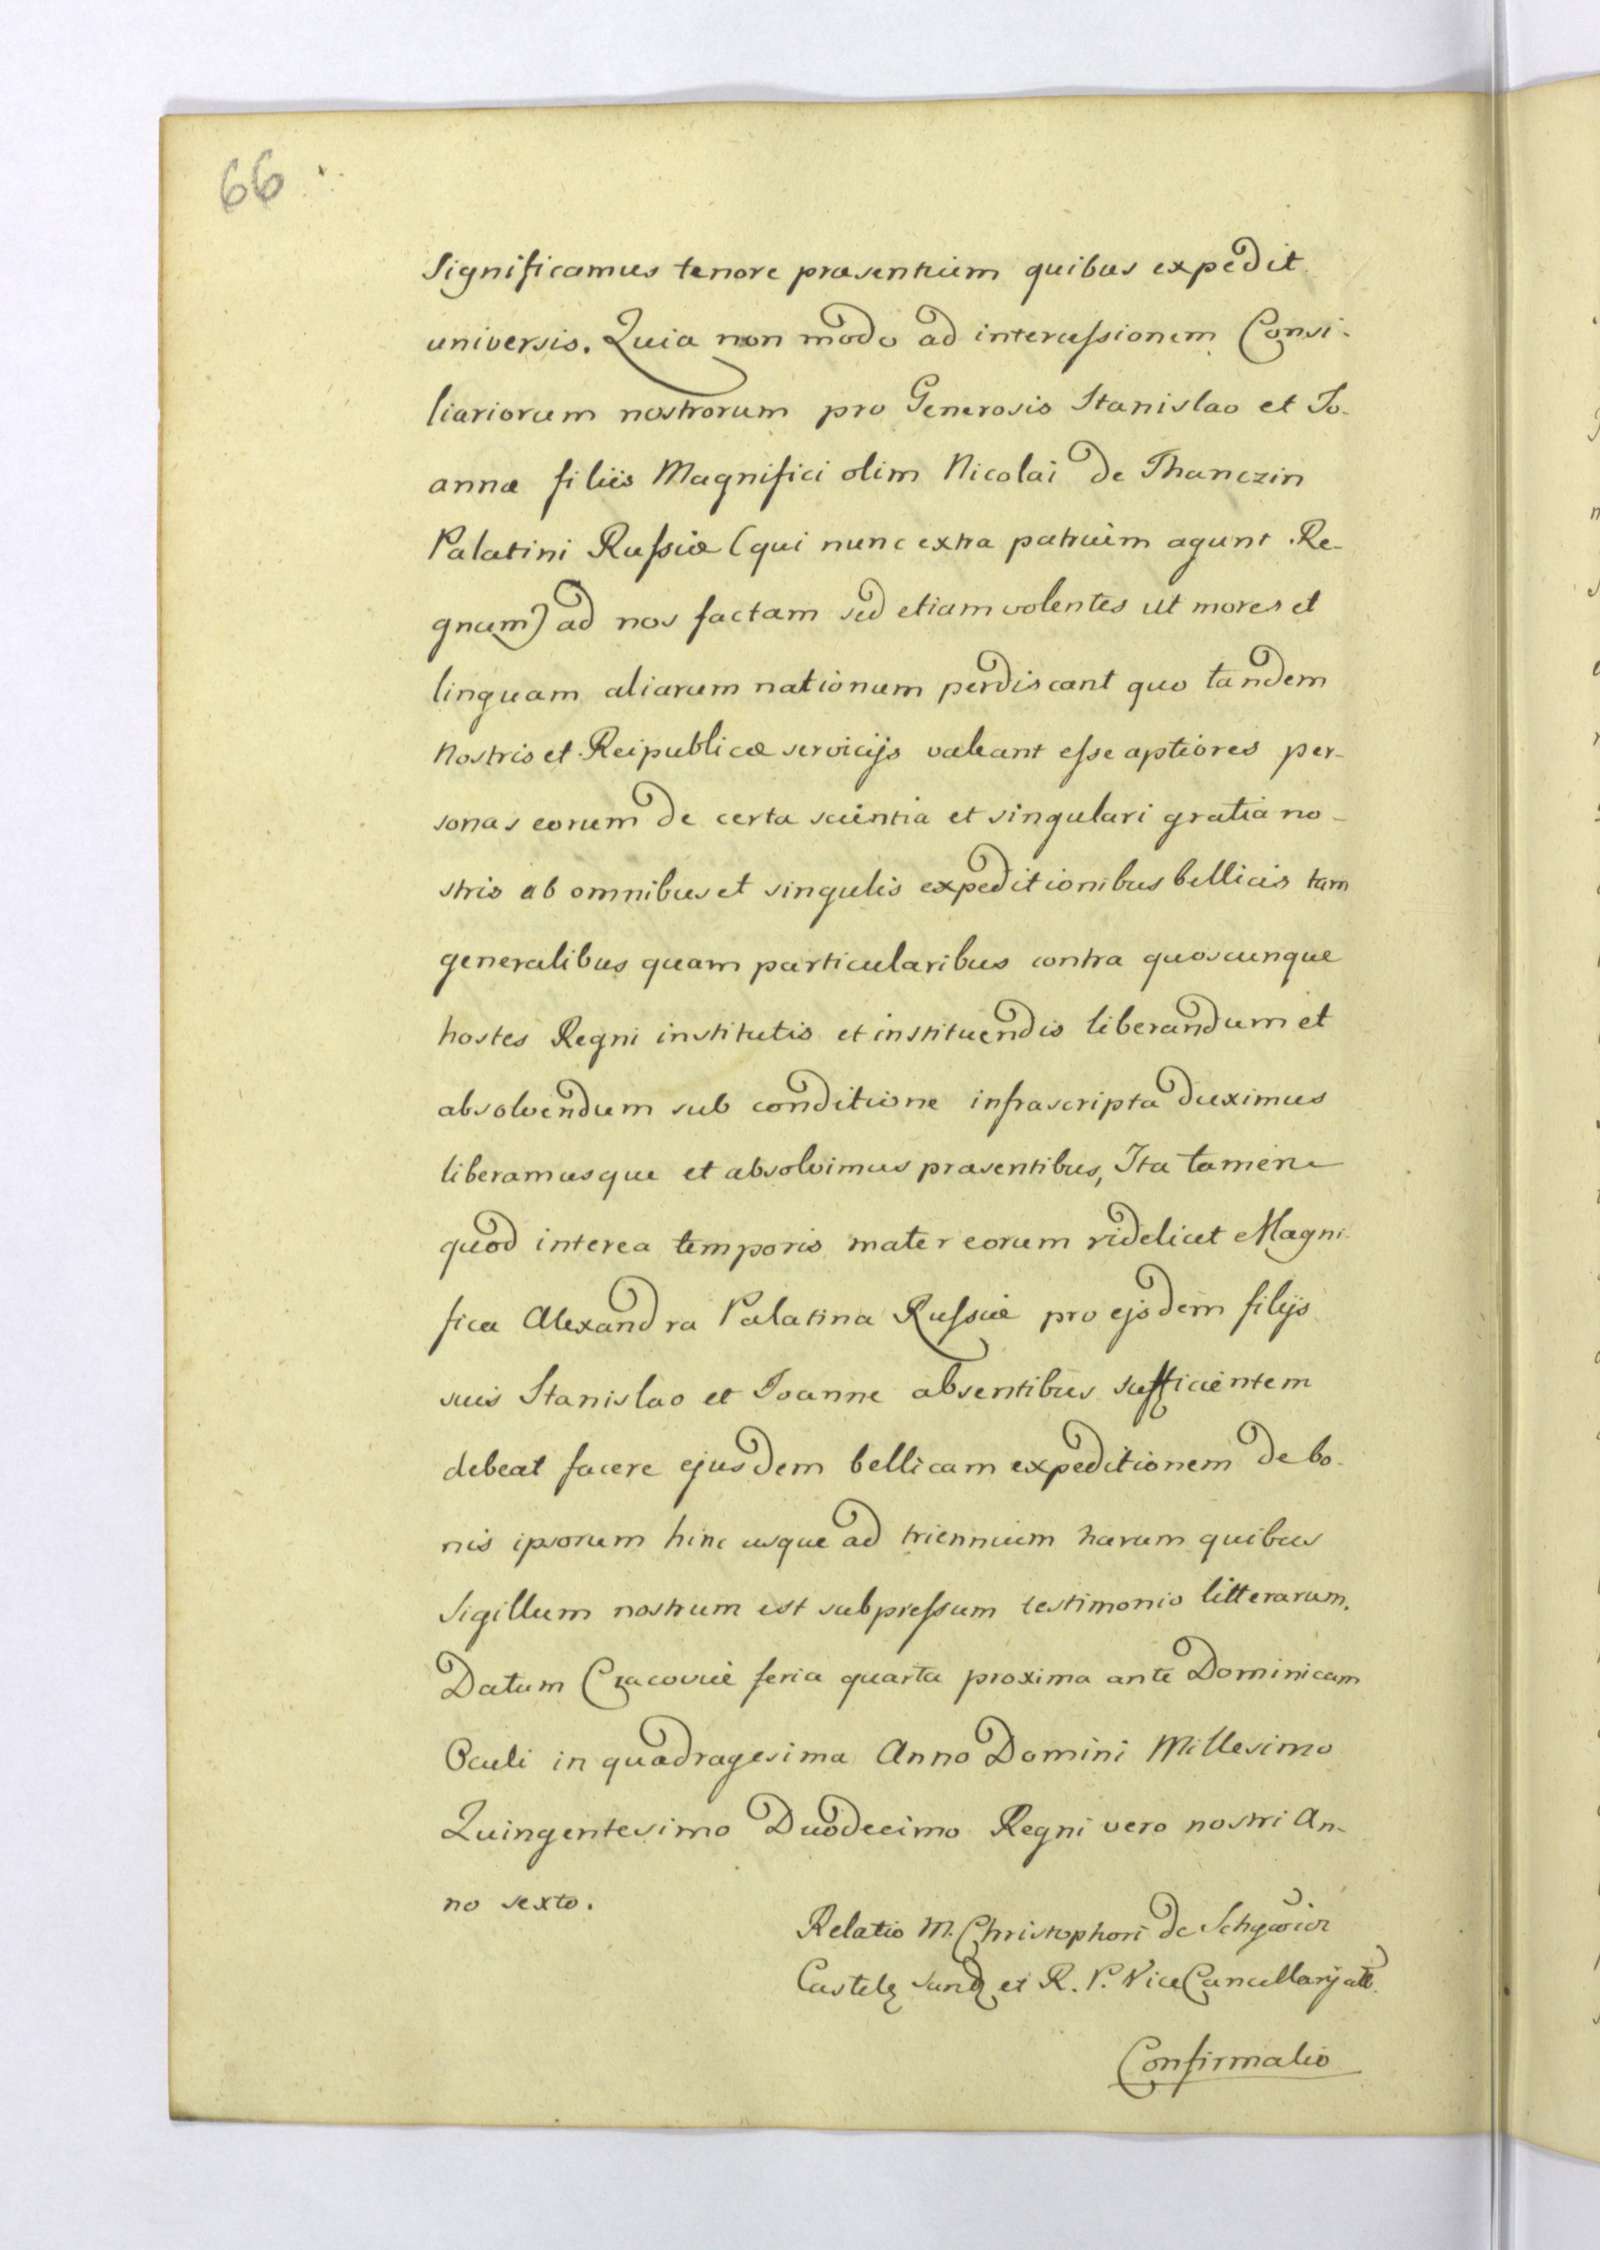 66
Significamus tenore præsentium quibus expedit
universis. Quia non modo ad intercessionem Consi-
liariorum nostrorum pro Generosis Stanislao et Jo-
anne filiis Magnifici olim Nicolai de Thanczin
Palatini Russiæ (qui nunc extra patrium agunt Re-
gnum) ad nos factam sed etiam volentes ut mores et
linguam aliarum nationum perdiscant quo tandem
nostris et Reipublicæ servicijs valeant esse aptiores per-
sonas eorum de certa scientia et singulari gratia no-
stris ab omnibus et singulis expeditionibus bellicis tam
generalibus quam particularibus contra quoscunque
hostes Regni institutis et instituendis liberandum et
absolvendum sub conditione infrascripta duximus
liberamusque et absolvimus præsentibus, Ita tamen
quod interea temporis mater eorum videlicet Magni-
fica Alexandra Palatina Russiæ pro ejsdem filijs
suis Stanislao et Joanne absentibus sufficientem
debeat facere ejusdem bellicam expeditionem de bo-
nis ipsorum hinc usque ad triennium harum quibus
Sigillum nostrum est subpressum testimonio litterarum.
Datum Cracoviæ feria quarta proxima ante Dominicam
Oculi in quadragesima Anno Domini Millesimo
Quingentesimo Duodecimo Regni vero nostri An-
no sexto.
Relatio M. Christophori de
et R. P. ViceCancellarij
Confirmatio